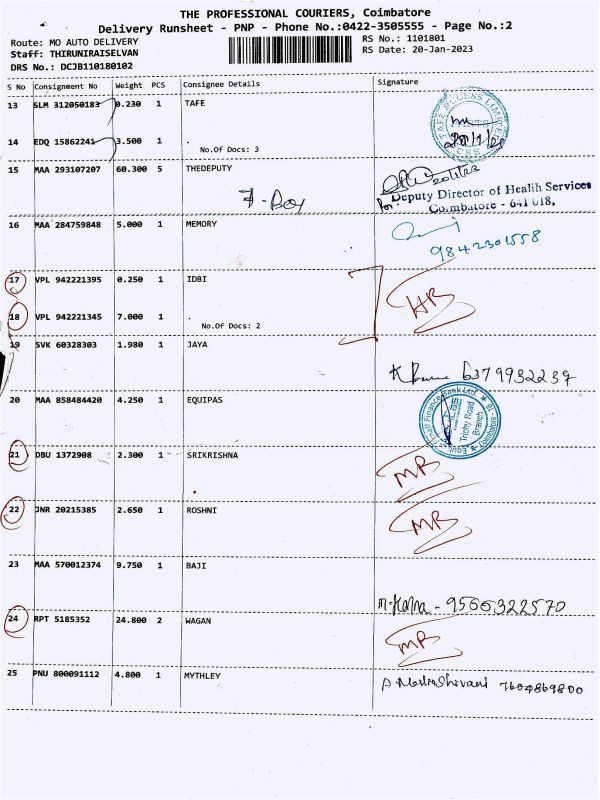 THE PROFESSIONAL COURIERS, Coimbatore
Delivery Runsheet - PNP - Phone No.:0422-3505555 - Page No.:2
Route: MO AUTO DELIVERY
RS No.: 1101801
Staff: THIRUNIRAISELVAN
RS Date: 20-Jan-2023
DRS No.: DCJB110180102
S No Consignment No Weight PCS Consignee Details Signature
13 SLM 312050183 0.230 1 TAFE
TAFE ACCESS LIMITED
14 EDQ 15862241 3.500 1 .
No.Of Docs: 3
CBS
15 MAA 293107207 60.300 5 THEDEPUTY
7-Box
for Deputy Director of Health Services
Coimbatore - 641 018,
16 MAA 284759848 5.000 1 MEMORY
9842301558
17 VPL 942221395 0.250 1 IDBI
HB
18 VPL 942221345 7.000 1 .
No.Of Docs: 2
19 SVK 60328303 1.980 1 JAYA
6379932239
20 MAA 858484420 4.250 1 EQUIPAS
Equitas Small Finance Bank Ltd
Trichy Road
Branch
Coimbatore
21 DBU 1372908 2.300 1 SRIKRISHNA
MB
22 JNR 20215385 2.650 1 ROSHNI
MB
23 MAA 570012374 9.750 1 BAJI
9566322570
24 RPT 5185352 24.800 2 WAGAN
MB
25 PNU 800091112 4.800 1 MYTHLEY
7604869800